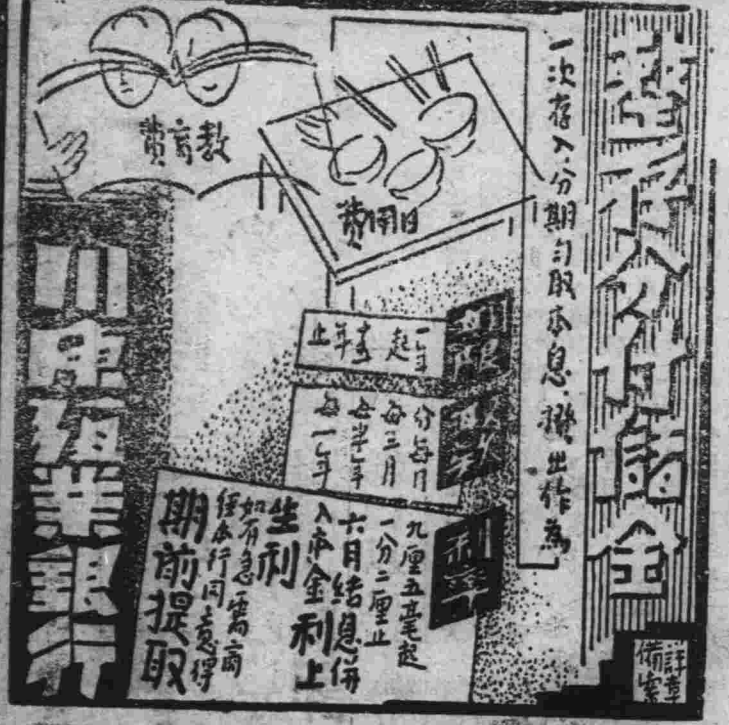 整存分付儲金
一次存入.分期勻取本息.撥出作為
教育費
日用費
期限
一年
起
年
止
分每月
每三月
每半年
每一年
利率
九厘五毫起
一分二厘止
六月結息併
入本金利上
生利
如有急需商
經本行同意得
期前提取
川康殖業銀行
詳章
備索